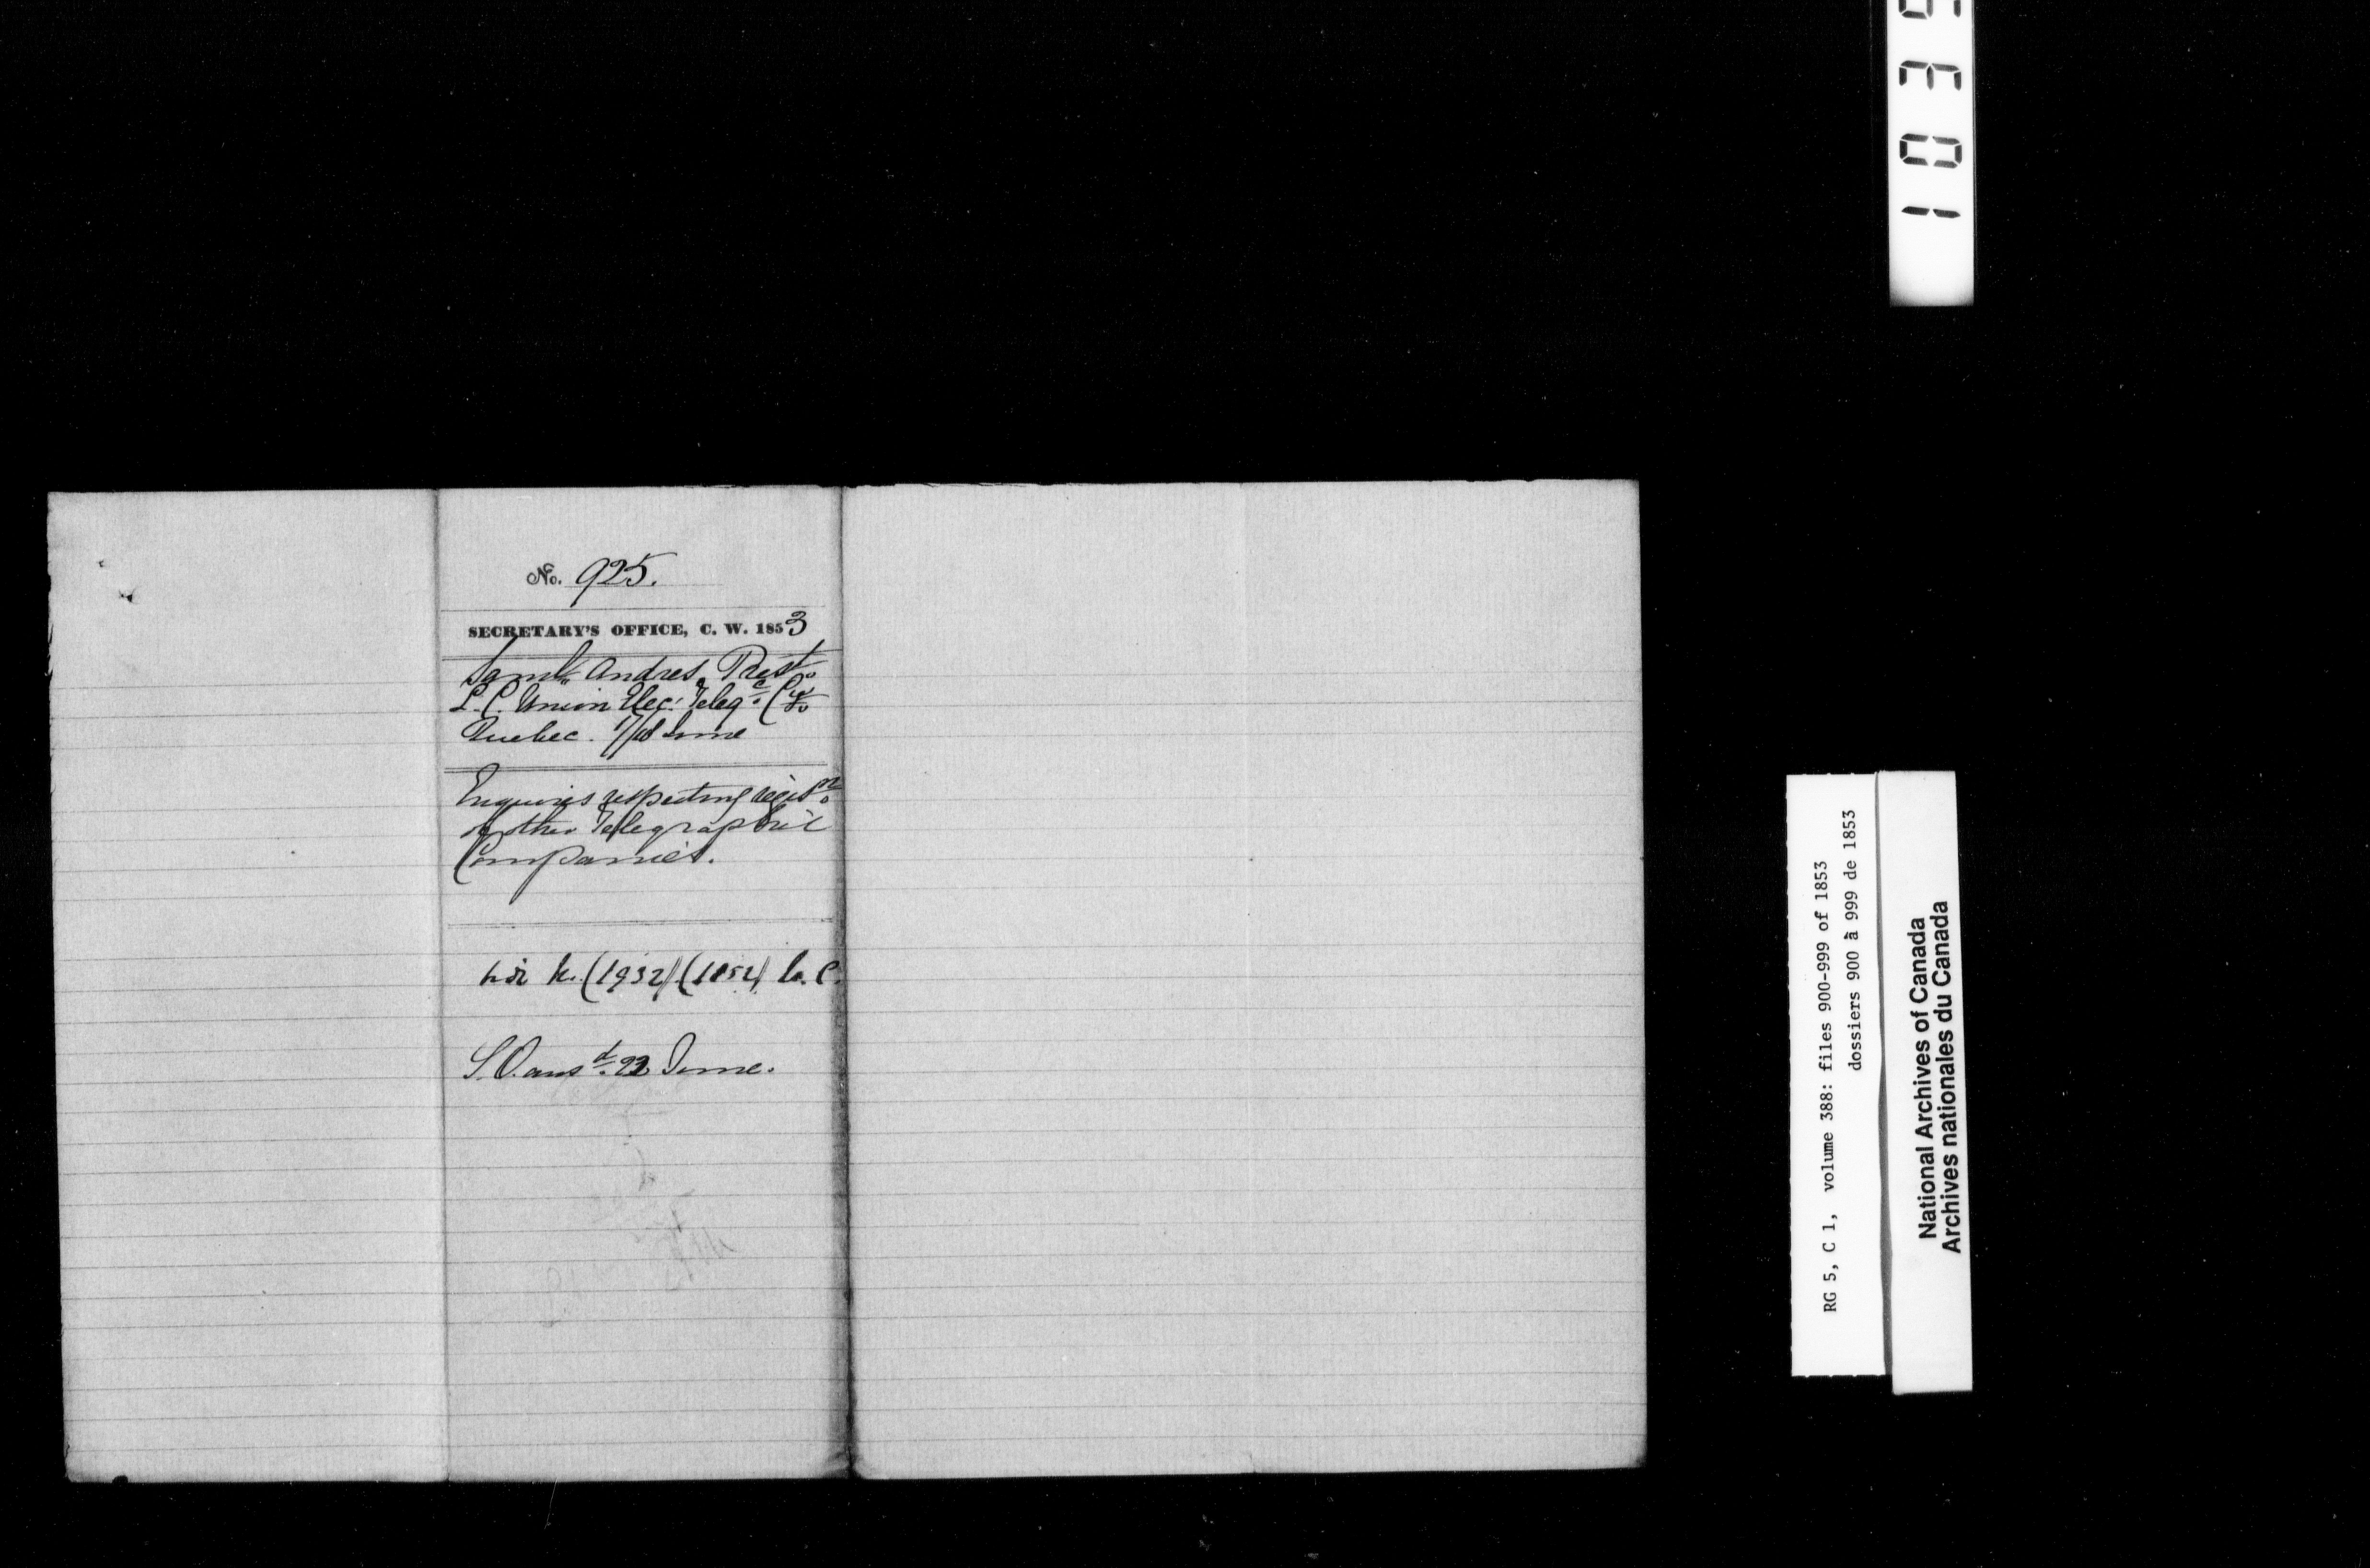 No. 925.
SECRETARY'S OFFICE, C. W. 1853
Saml. Andres, Prest.
L.C. Union Elec: Teleg. Co
Quebec. 17/18 June
Enquiries respecting regisn.
of other Telegraphic
Companies.
(1932) (1852) C.
S.O. ansd. 22 June.
RG 5, C 1, volume 388: files 900-999 of 1853
dossiers 900 à 999 de 1853
National Archives of Canada
Archives nationales du Canada
1035